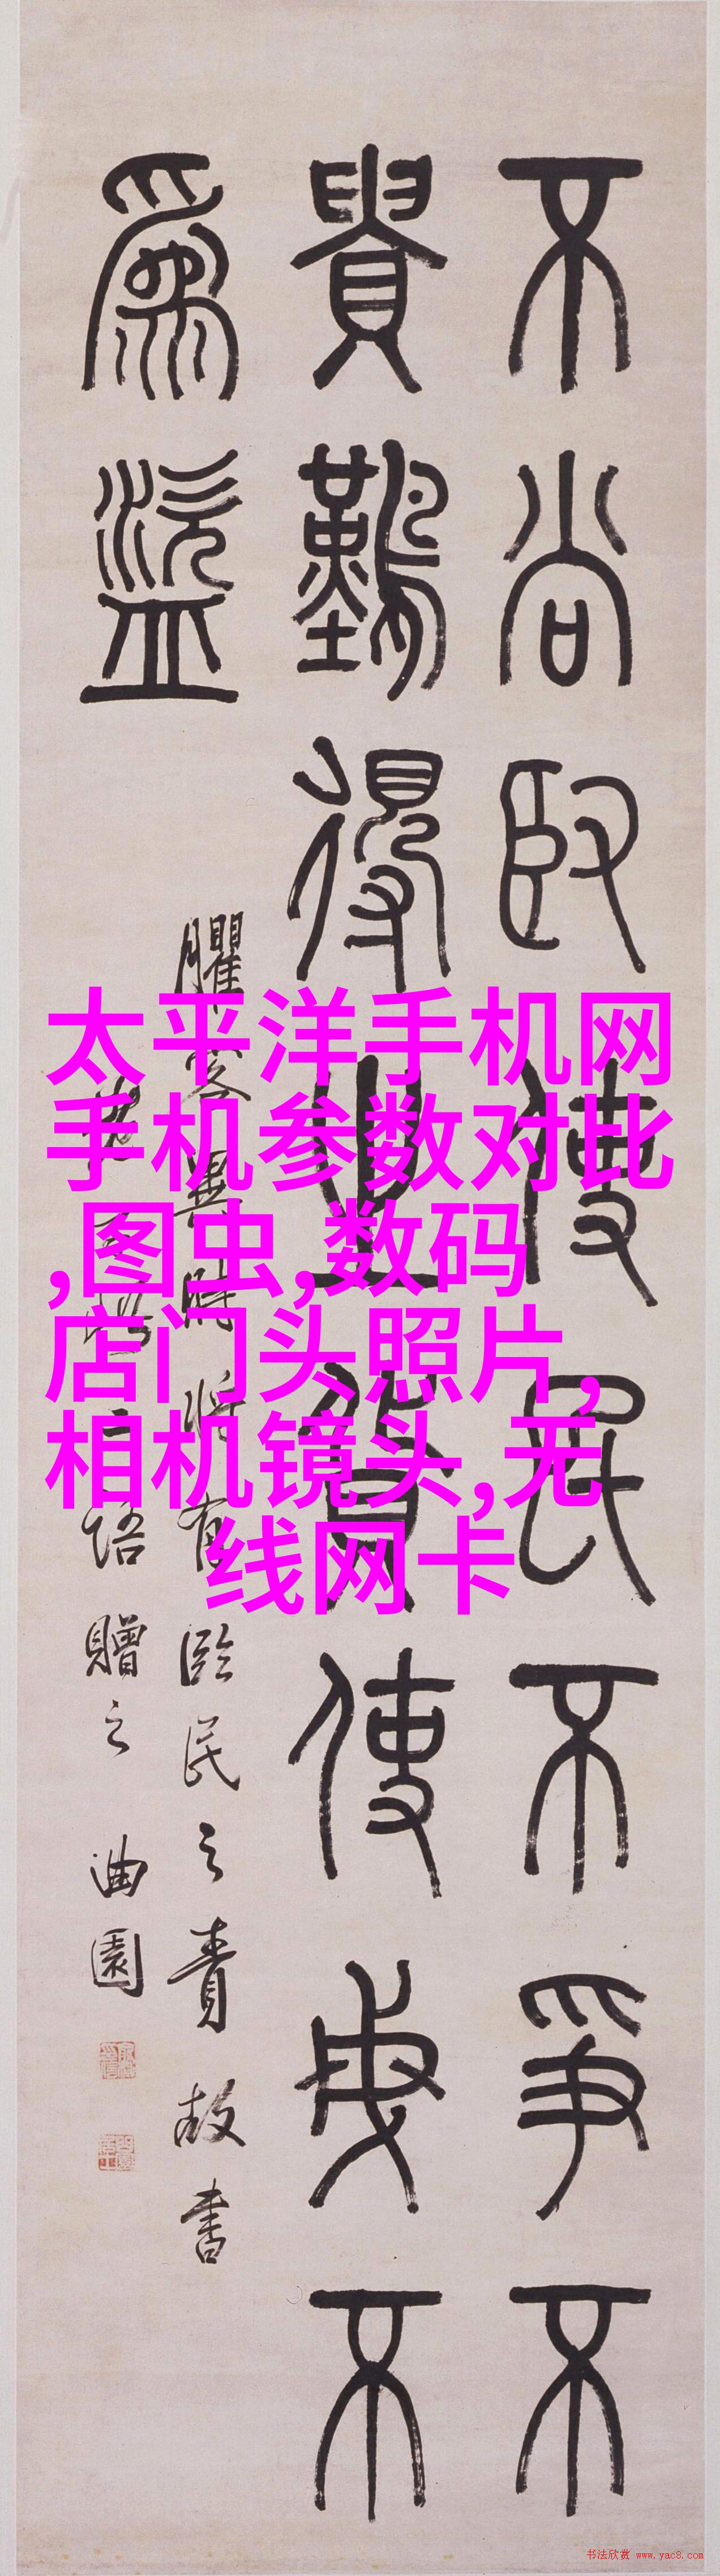 不尚臤使民不爭不
貴難得之貨使民不
爲盜
臞客異時將有臨民之責故書
之語贈之 曲園
太平洋手机网
手机参数对比
,图虫,数码
店门头照片,
相机镜头,无
线网卡
书法欣赏 www.yac8.com